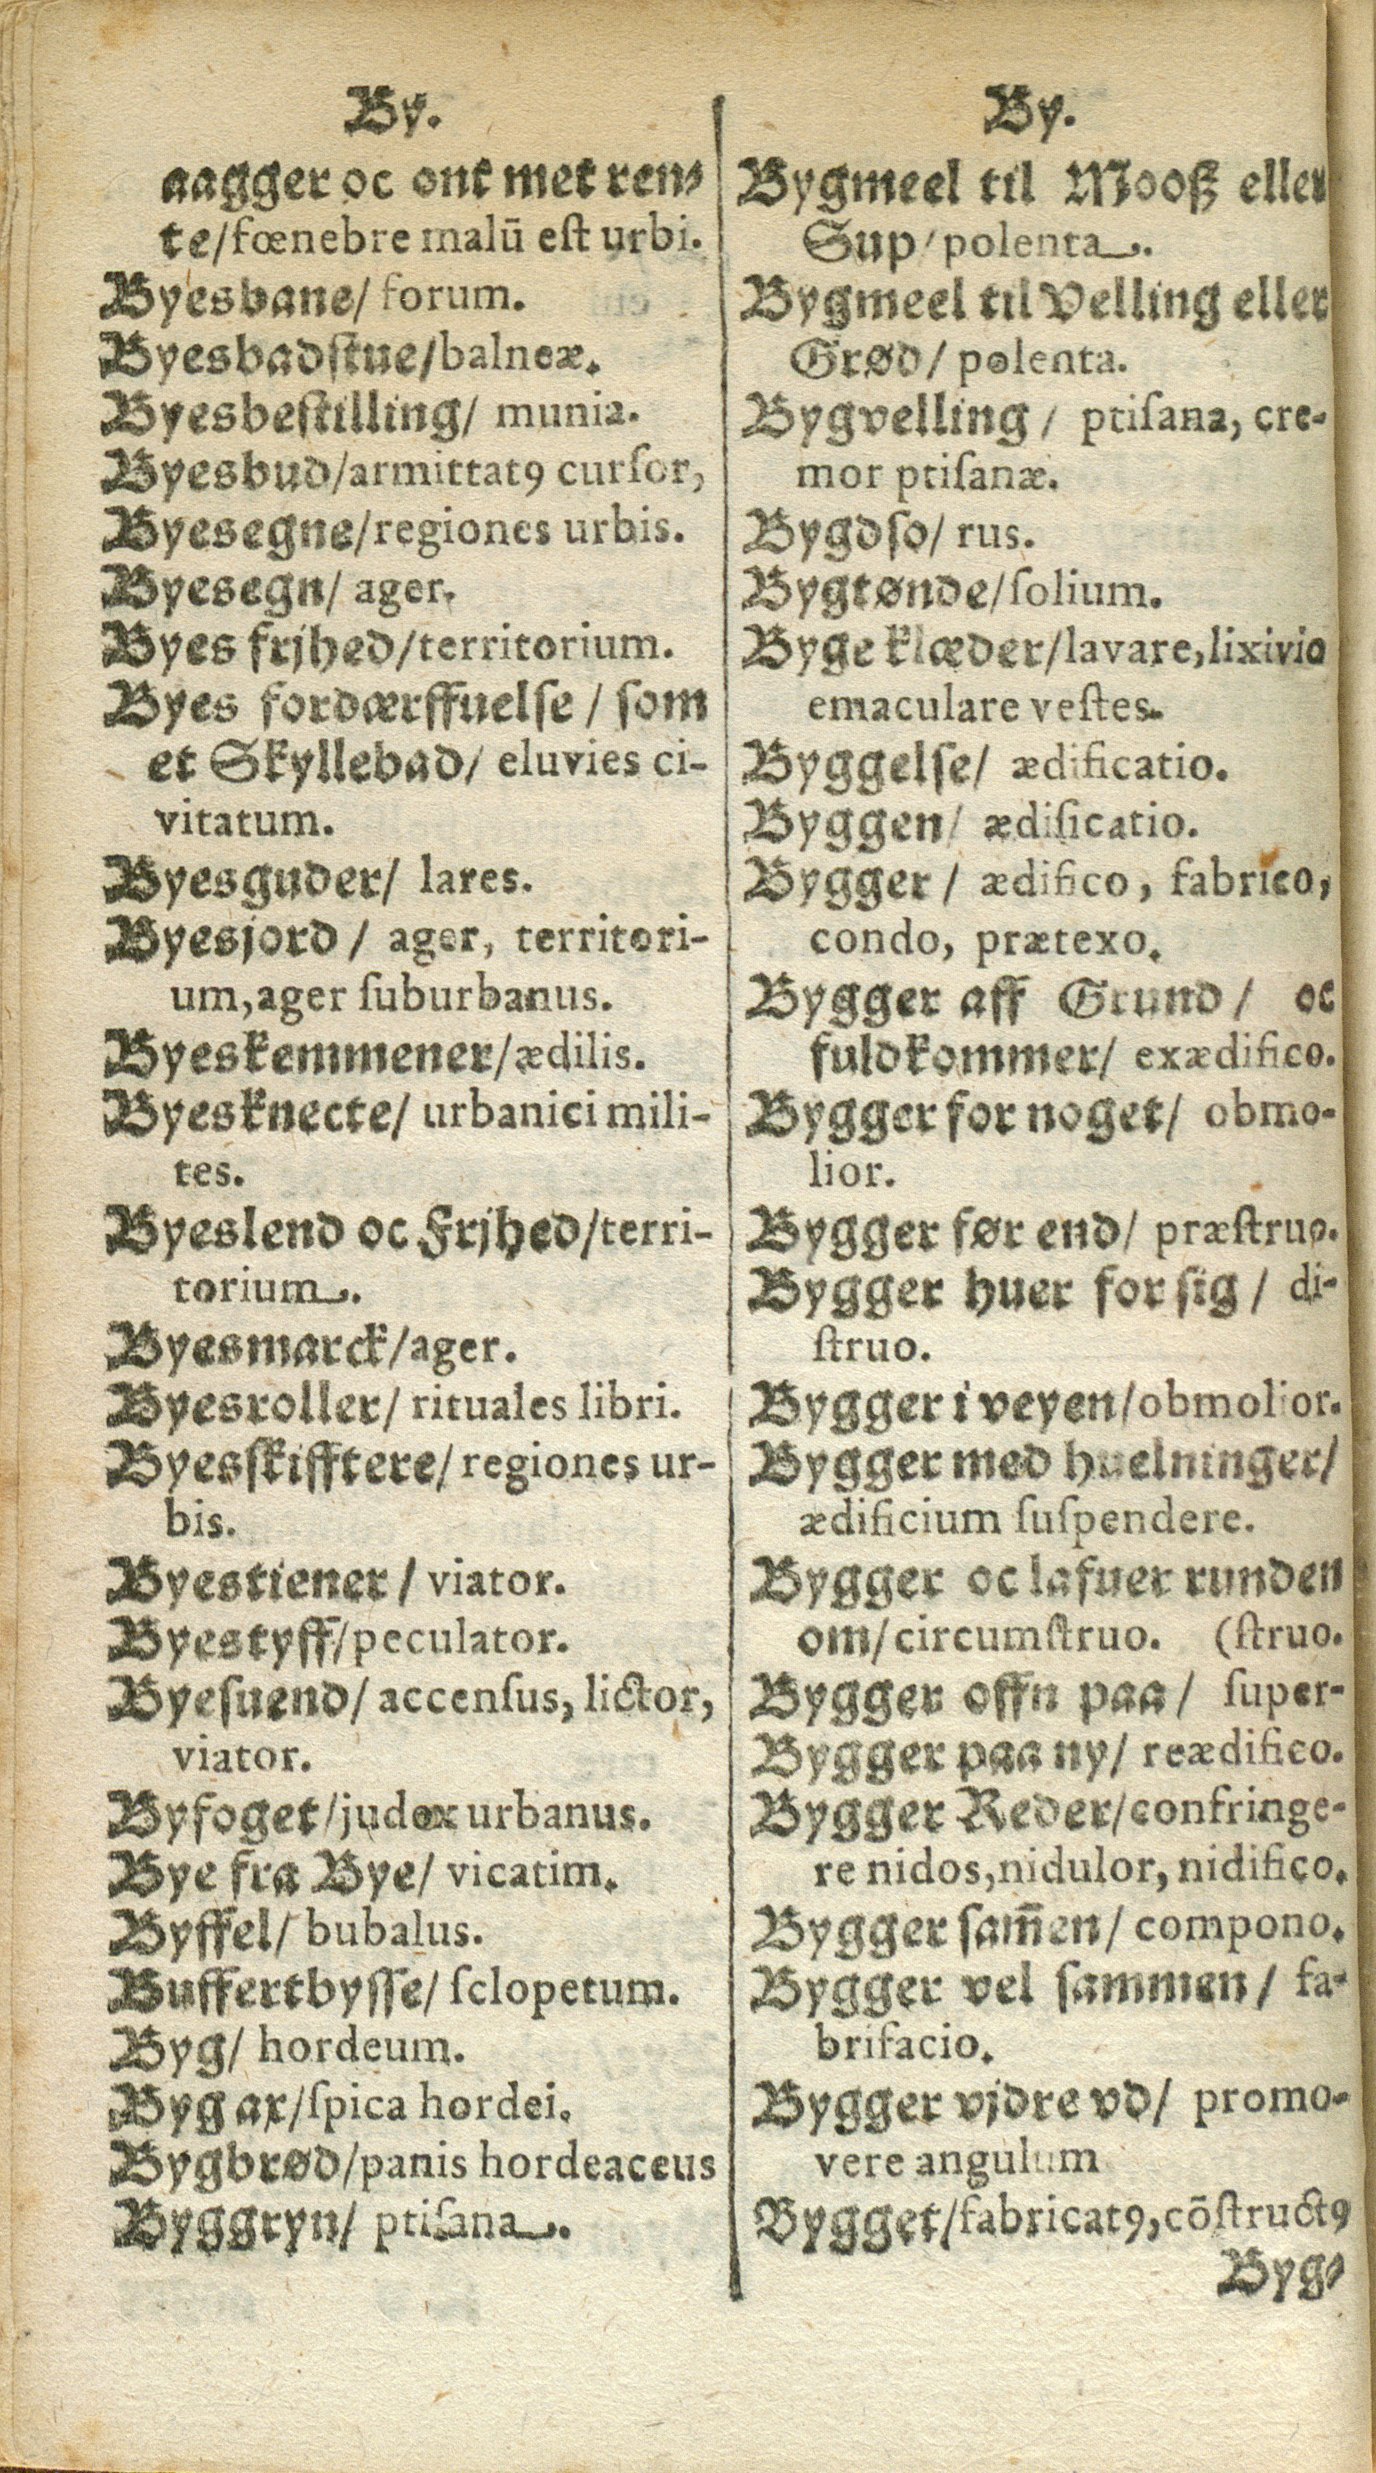 By.
aagger oc ont met ren⸗
te/fœnebre malū eſt urbi.
Byesbane/ forum.
Byesbadſtue/balneæ.
Byesbeſtilling/ munia.
Byesbud/armittatꝰ curſor,
Byesegne/regiones urbis.
Byesegn/ ager.
Byes frjhed/territorium.
Byes fordærffuelſe / ſom
et Skyllebad/ eluvies ci-
vitatum.
Byesguder/ lares.
Byesjord / ager, territori-
um,ager ſuburbanus.
Byeskemmener/ædilis.
Byesknecte/ urbanici mili-
tes.
Byeslend oc Frjhed/terri-
torium.
Byesmarck/ager.
Byesroller/ rituales libri.
Byesſkifftere/ regiones ur-
bis.
Byestiener / viator.
Byestyff/peculator.
Byeſuend/ accenſus, lictor,
viator.
Byfoget/judex urbanus.
Bye fra Bye/ vicatim.
Byffel/ bubalus.
Buffertbyſſe/ ſclopetum.
Byg/ hordeum.
Byg ax/ſpica hordei.
Bygbrød/panis hordeaceus
Byggryn/ ptiſana.
By.
Bygmeel til Mooß eller
Sup/polenta.
Bygmeel til Velling eller
Grød/ polenta.
Bygvelling / ptiſana, cre-
mor ptiſanæ.
Bygdſo/ rus.
Bygtønde/ſolium.
Byge klæder/lavare,lixivio
emaculare veſtes.
Byggelſe/ ædificatio.
Byggen/ ædificatio.
Bygger / ædifico, fabrico,
condo, prætexo.
Bygger aff Grund / oc
fuldkommer/ exædifico.
Bygger for noget/ obmo-
lior.
Bygger før end/ præſtruo.
Bygger huer for ſig / di-
ſtruo.
Bygger i veyen/obmolior.
Bygger med huelninger/
ædificium ſuſpendere.
Bygger oc lafuer runden
om/circumſtruo. (ſtruo.
Bygger offn paa / ſuper-
Bygger paa ny/ reædifico.
Bygger Reder/confringe-
re nidos,nidulor, nidifico.
Bygger ſam̄en/ compono.
Bygger vel ſammen / fa-
brifacio.
Bygger vjdre vd/ promo-
vere angulum
Bygget/fabricatꝰ,cōſtructꝰ
Byg⸗